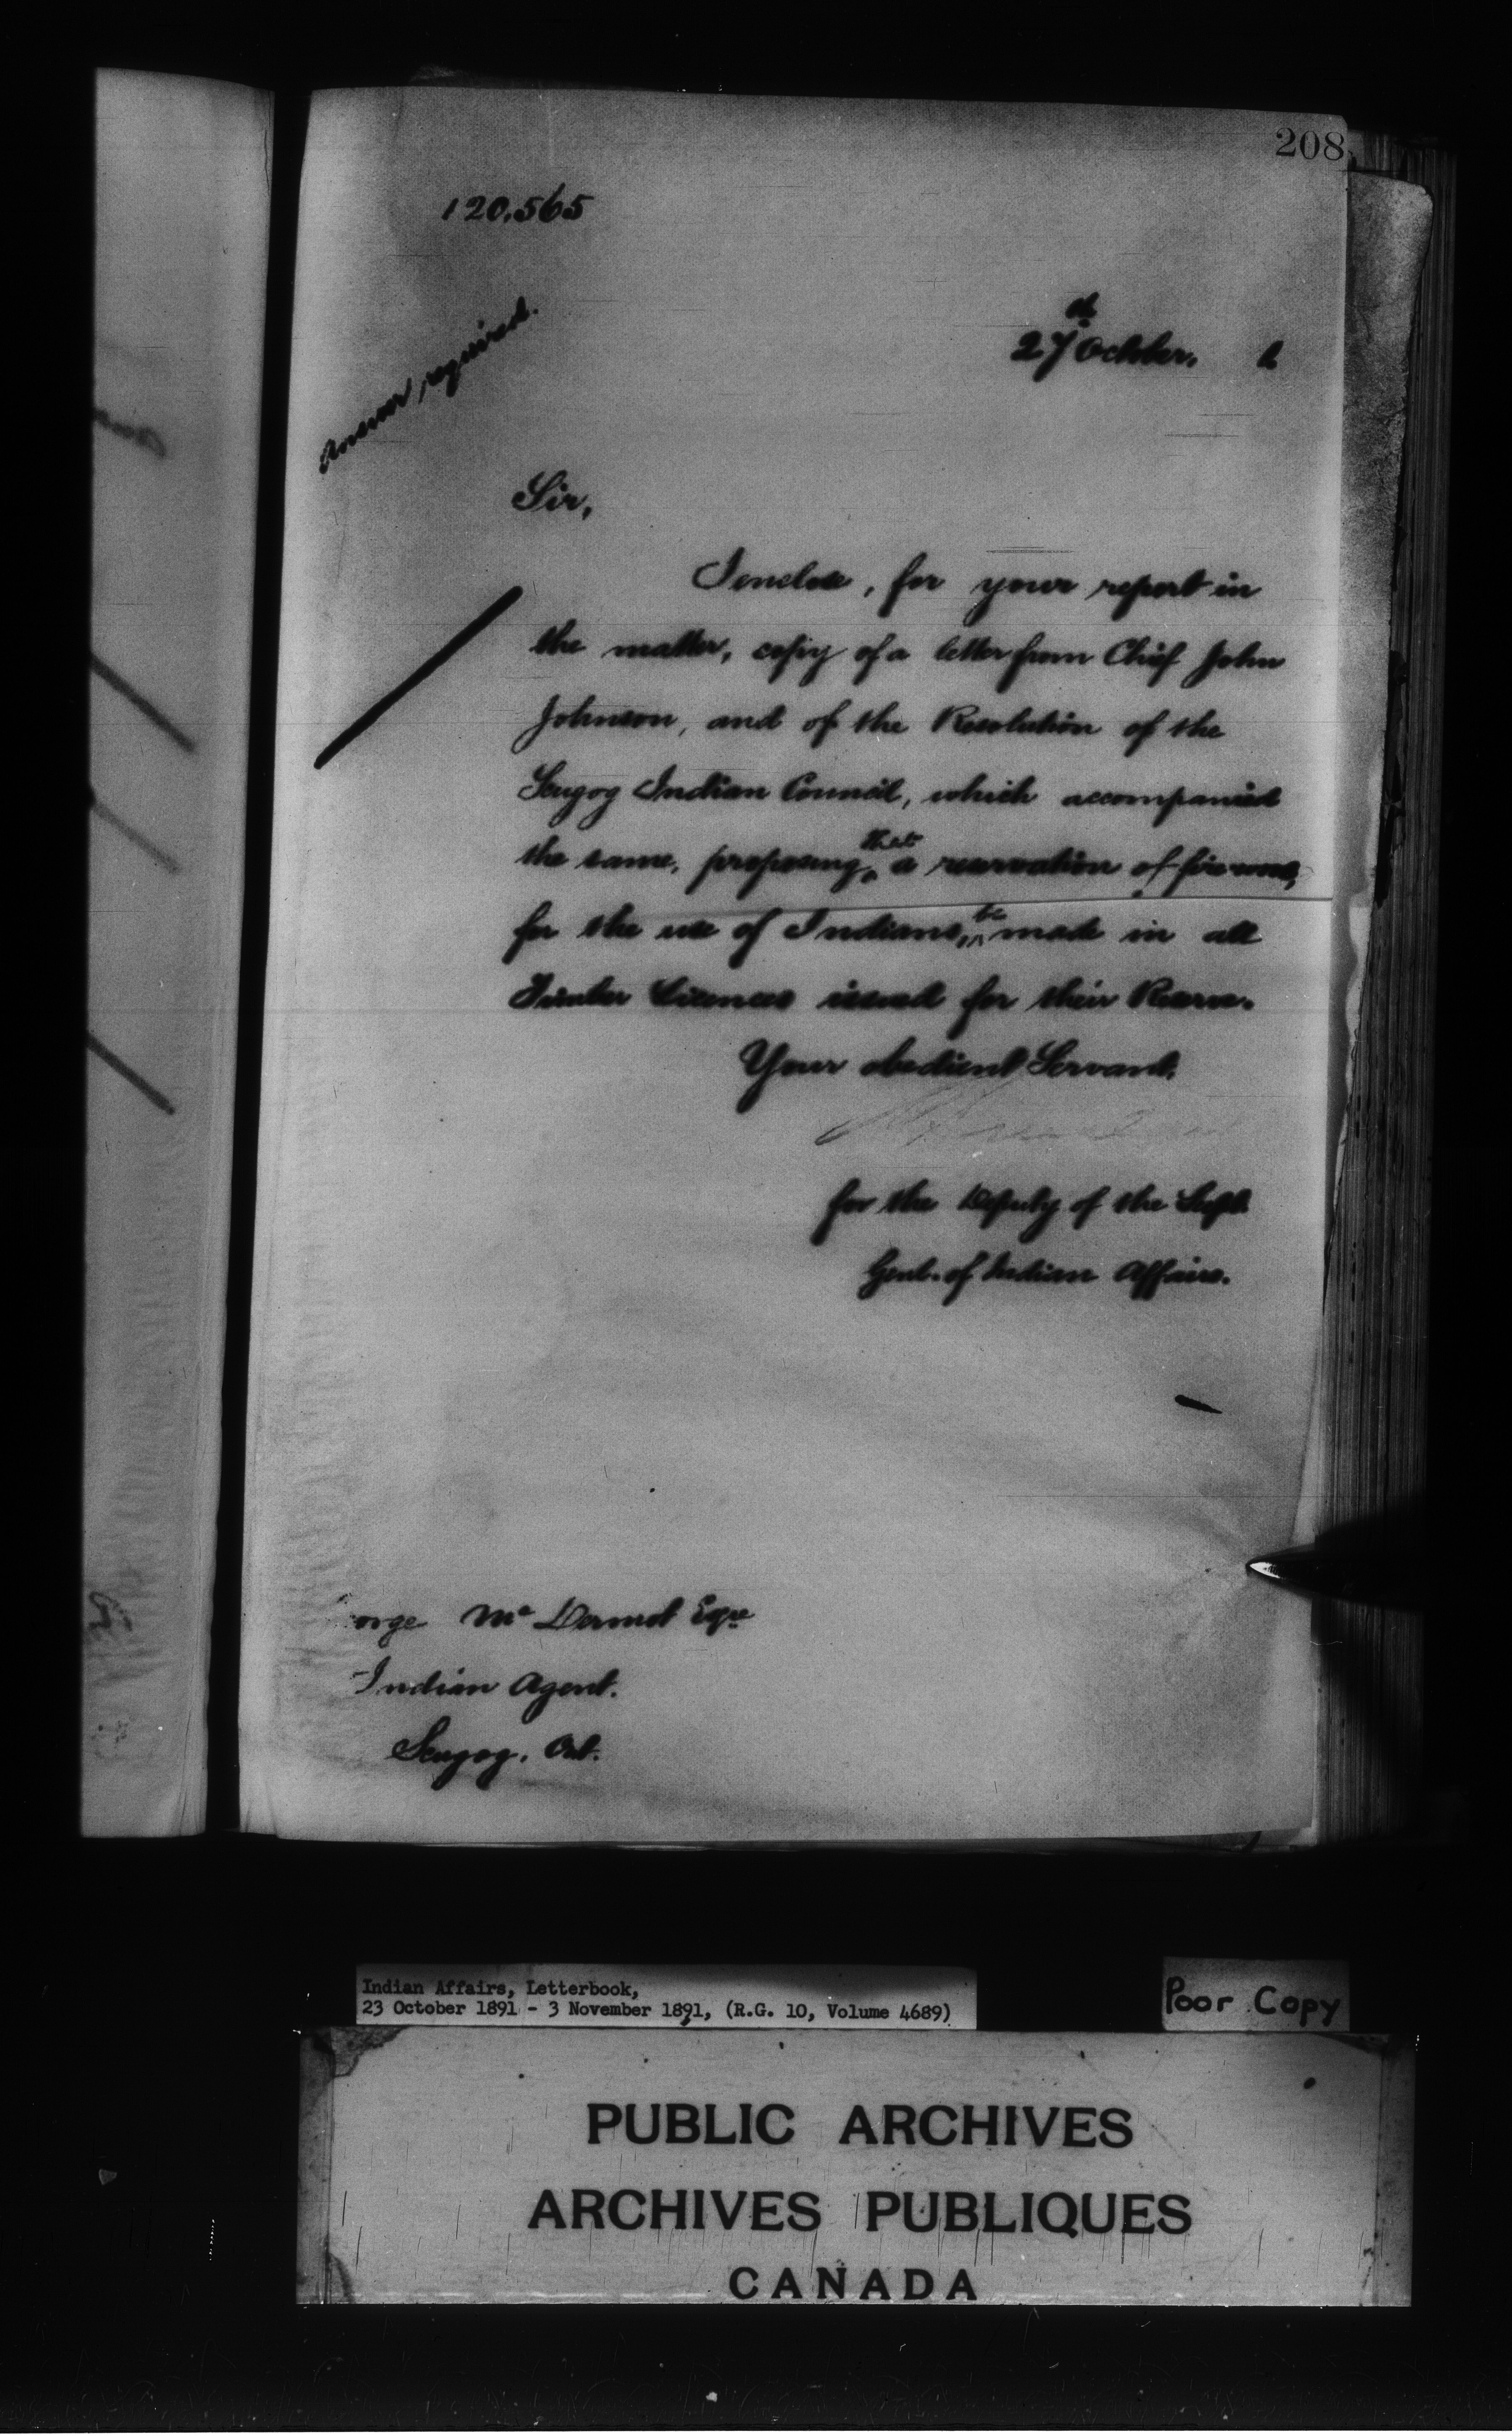 208
120,565
27th October. 1
Answer required.
Sir,
I enclose, for your report in
the matter, copy of a letter from Chief John
Johnson, and of the Resolution of the
Scugog Indian Council, which accompanied
the same, proposing that a reservation of firewood,
for the use of Indians, be made in all
Timber Licences issued for their Reserve.
Your obedient Servant,
for the Deputy of the Supt.
Genl. of Indian Affairs.
orge McDermot Eqre
Indian Agent.
Scugog. Ont.
Indian Affairs, Letterbook,
23 October 1891 - 3 November 1891, (R.G. 10, Volume 4689)
Poor Copy
PUBLIC ARCHIVES
ARCHIVES PUBLIQUES
CANADA